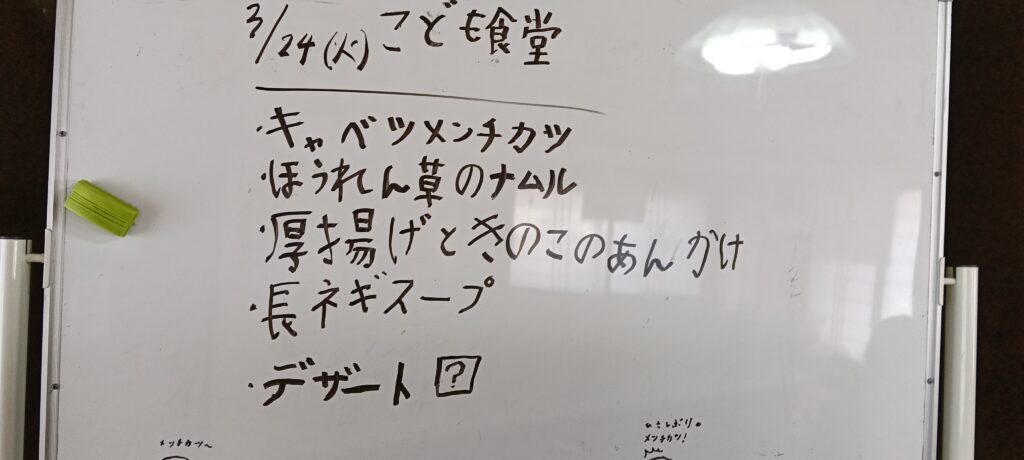 3/24(火)こども食堂
・キャベツメンチカツ
・ほうれん草のナムル
・厚揚げときのこのあんかけ
・長ネギスープ
・デザート ?
メンチカツ〜
ひさしぶりの
メンチカツ!